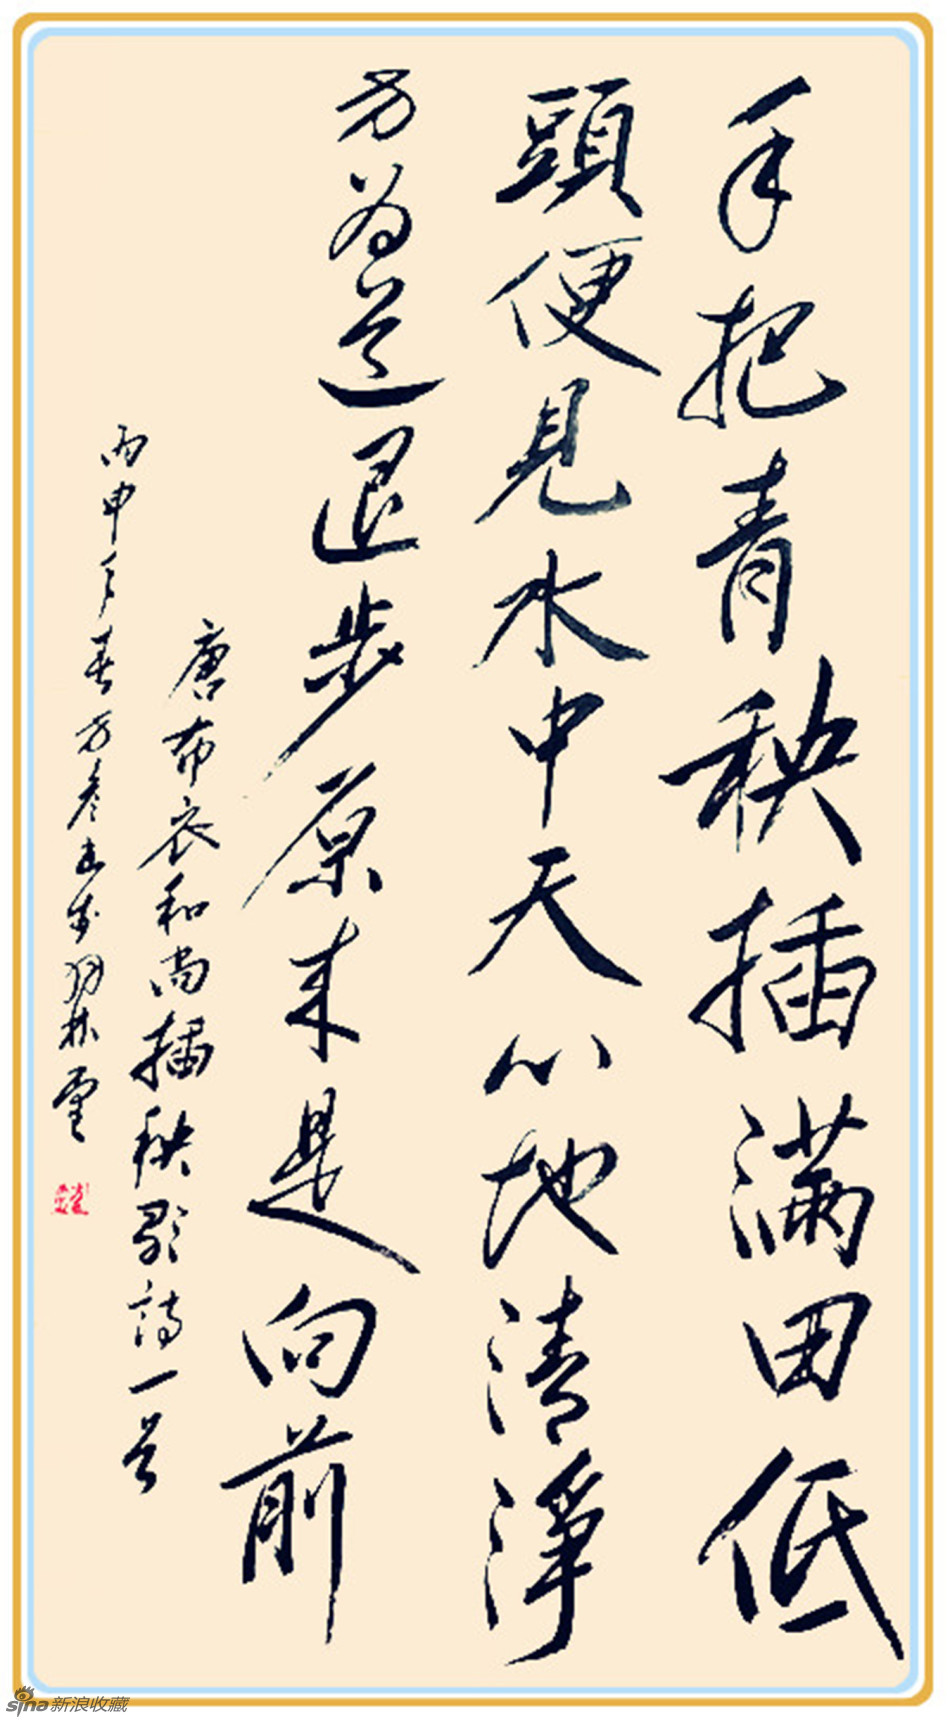 手把青秧插满田低
頭便見水中天心地清淨
方為道退步原来是向前
唐布衣和尚插秧歌詩一首
丙申年春方彦
sina新浪收藏